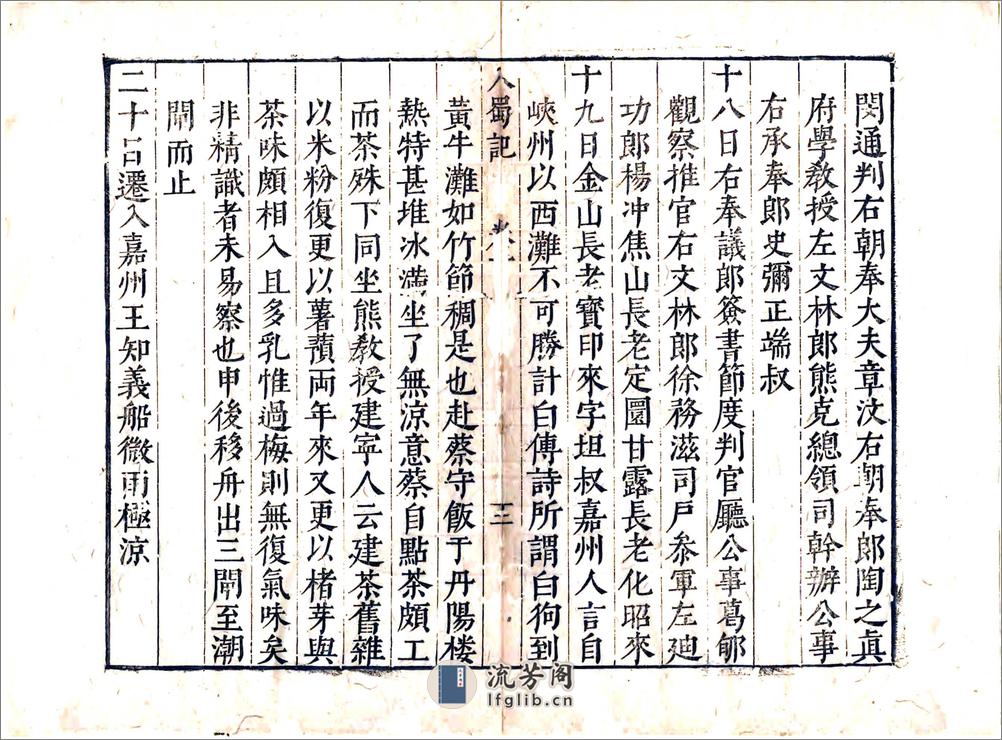 閔通判右朝奉大夫章汶右朝奉郎陶之眞
府學敎授左文林郎熊克總領司幹辦公事
右承奉郎史彌正端叔
十八日右奉議郎簽書節度判官廳公事葛郇
觀察推官右文林郎徐務滋司戸叅軍左廸
功郎楊冲焦山長老定圜甘露長老化昭來
十九日金山長老寳印來字坦叔嘉州人言自
峽州以西灘不可勝計白傅詩所謂白狗到
入蜀記
三
黃牛灘如竹節稠是也赴蔡守飯于丹陽楼
熱特甚堆冰滿坐了無凉意蔡自點茶頗工
而茶殊下同坐熊敎授建寕人云建茶舊雜
以米粉復更以薯蕷兩年來又更以楮芽與
茶味頗相入且多乳惟過梅則無復氣味矣
非精識者未易察也申後移舟出三閘至潮
閘而止
二十日遷入嘉州王知義船微雨極凉
流芳阁
lfglib.cn